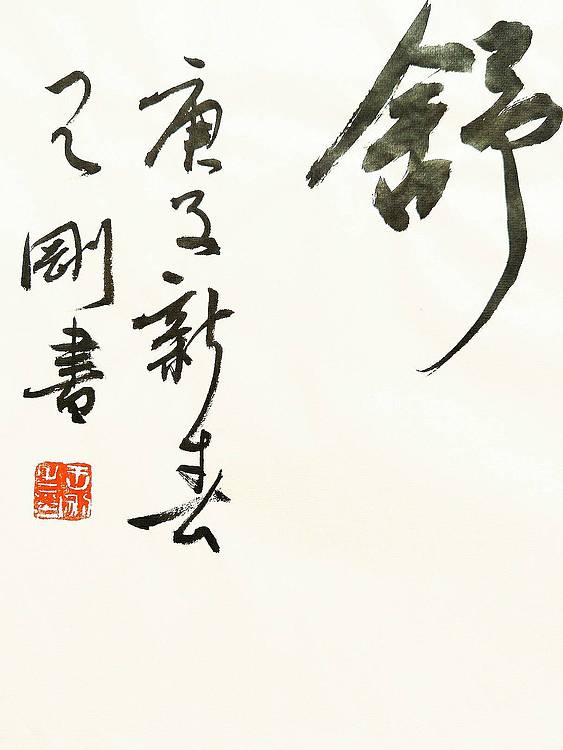 舒
庚子新春
剛書